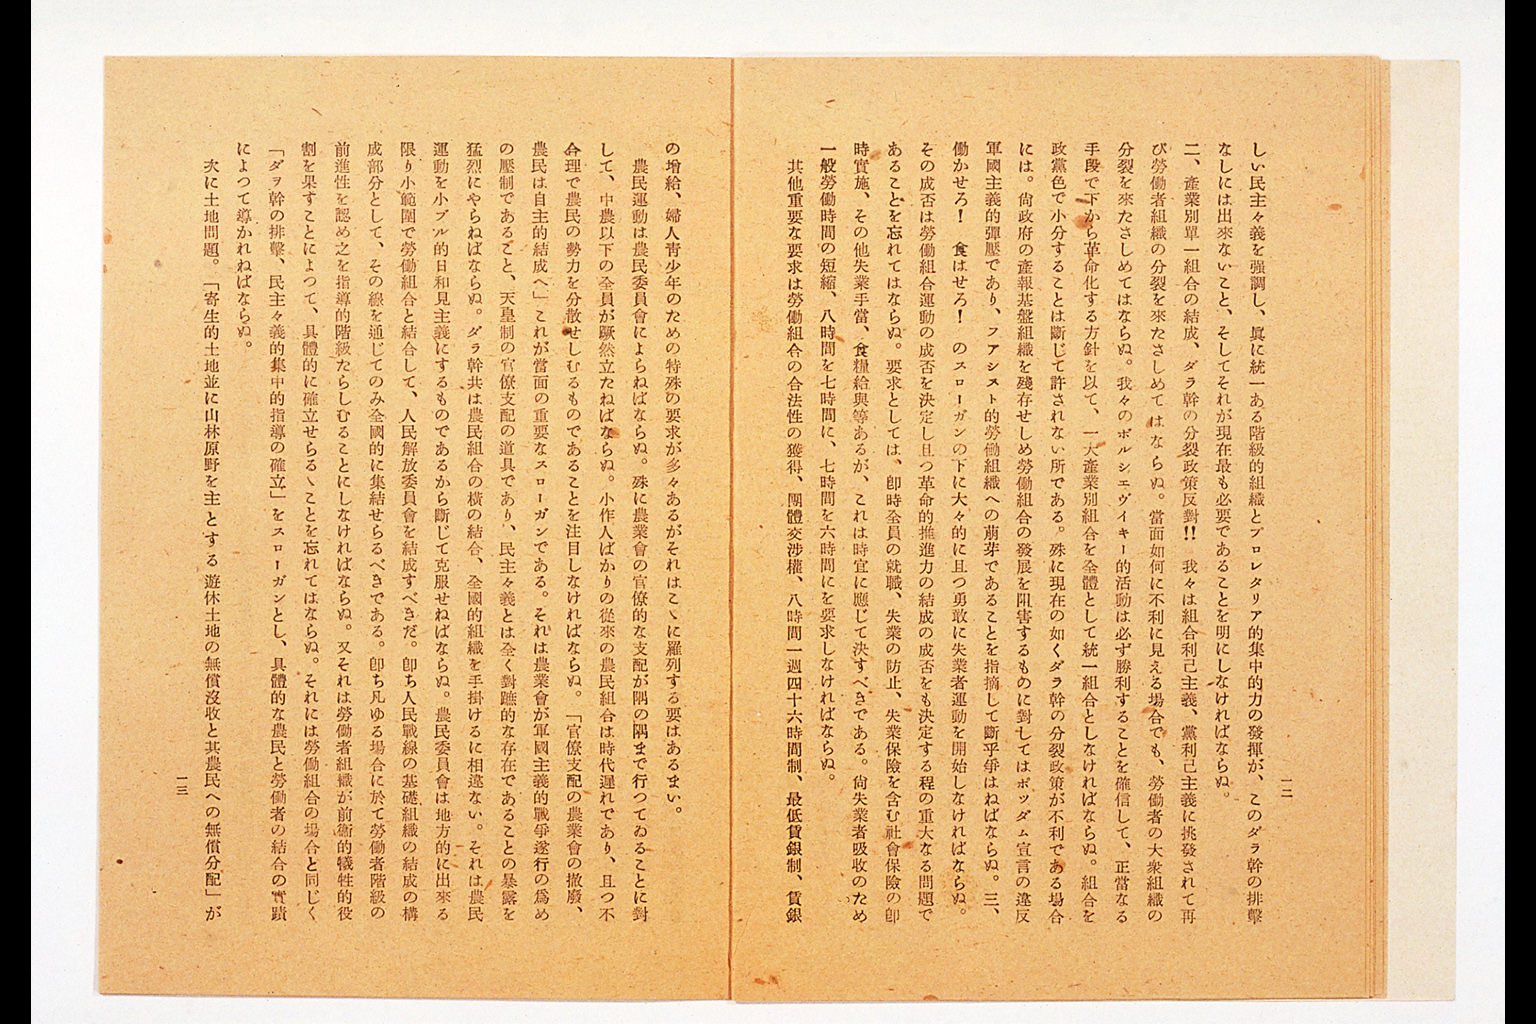 しい民主々義を強調し、眞に統一ある階級的組織とプロレタリア的集中的力の發揮が、このダラ幹の排擊
なしには出來ないこと、そしてそれが現在最も必要であることを明にしなければならぬ。
二、產業別單一組合の結成、ダラ幹の分裂政策反對!! 我々は組合利己主義、黨利己主義に挑發されて再
び勞働者組織の分裂を來たさしめてはならぬ。當面如何に不利に見える場合でも、勞働者の大衆組織の
分裂を來たさしめてはならぬ。我々のボルシェヴイキー的活動は必ず勝利することを確信して、正當なる
手段で下から革命化する方針を以て、一大產業別組合を全體として統一組合としなければならぬ。組合を
政黨色で小分することは斷じて許されない所である。殊に現在の如くダラ幹の分裂政策が不利である場合
には。尙政府の產報基盤組織を殘存せしめ勞働組合の發展を阻害するものに對してはポツダム宣言の違反
軍國主義的彈壓であり、フアシスト的勞働組織への萠芽であることを指摘して斷乎爭はねばならぬ。三、
働かせろ! 食はせろ! のスローガンの下に大々的に且つ勇敢に失業者運動を開始しなければならぬ。
その成否は勞働組合運動の成否を決定し且つ革命的推進力の結成の成否をも決定する程の重大なる問題で
あることを忘れてはならぬ。要求としては、卽時全員の就職、失業の防止、失業保險を含む社會保險の卽
時實施、その他失業手當、食糧給與等あるが、これは時宜に應じて決すべきである。尙失業者吸收のため
一般勞働時間の短縮、八時間を七時間に、七時間を六時間にを要求しなければならぬ。
其他重要な要求は勞働組合の合法性の獲得、團體交涉權、八時間一週四十六時間制、最低賃銀制、賃銀
一二
の增給、婦人靑少年のための特殊の要求が多々あるがそれはこゝに羅列する要はあるまい。
農民運動は農民委員會によらねばならぬ。殊に農業會の官僚的な支配が隅の隅まで行つてゐることに對
して、中農以下の全員が蹶然立たねばならぬ。小作人ばかりの從來の農民組合は時代遲れであり、且つ不
合理で農民の勢力を分散せしむるものであることを注目しなければならぬ。「官僚支配の農業會の撤廢、
農民は自主的結成へ」これが當面の重要なスローガンである。それは農業會が軍國主義的戰爭遂行の爲め
の壓制であること、天皇制の官僚支配の道具であり、民主々義とは全く對蹠的な存在であることの暴露を
猛烈にやらねばならぬ。ダラ幹共は農民組合の橫の結合、全國的組織を手掛けるに相違ない。それは農民
運動を小ブル的日和見主義にするものであるから斷じて克服せねばならぬ。農民委員會は地方的に出來る
限り小範圍で勞働組合と結合して、人民解放委員會を結成すべきだ。卽ち人民戰線の基礎組織の結成の構
成部分として、その線を通じてのみ全國的に集結せらるべきである。卽ち凡ゆる場合に於て勞働者階級の
前進性を認め之を指導的階級たらしむることにしなければならぬ。又それは勞働者組織が前衞的犧牲的役
割を果すことによつて、具體的に確立せらるゝことを忘れてはならぬ。それには勞働組合の場合と同じく
「ダラ幹の排擊、民主々義的集中的指導の確立」をスローガンとし、具體的な農民と勞働者の結合の實蹟
によつて導かれねばならぬ。
次に土地問題。「寄生的土地並に山林原野を主とする遊休土地の無償沒收と其農民への無償分配」が
一三